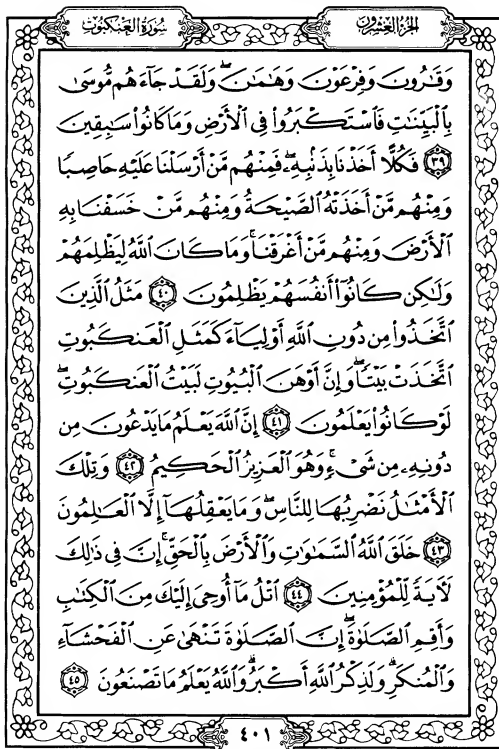 الجزء العشرون
سورة العنكبوت
وَقَٰرُونَ وَفِرْعَوْنَ وَهَٰمَٰنَ ۖ وَلَقَدْ جَآءَهُم مُّوسَىٰ
بِٱلْبَيِّنَٰتِ فَٱسْتَكْبَرُوا۟ فِى ٱلْأَرْضِ وَمَا كَانُوا۟ سَٰبِقِينَ
٣٩ فَكُلًّا أَخَذْنَا بِذَنۢبِهِۦ ۖ فَمِنْهُم مَّنْ أَرْسَلْنَا عَلَيْهِ حَاصِبًا
وَمِنْهُم مَّنْ أَخَذَتْهُ ٱلصَّيْحَةُ وَمِنْهُم مَّنْ خَسَفْنَا بِهِ
ٱلْأَرْضَ وَمِنْهُم مَّنْ أَغْرَقْنَا ۚ وَمَا كَانَ ٱللَّهُ لِيَظْلِمَهُمْ
وَلَٰكِن كَانُوٓا۟ أَنفُسَهُمْ يَظْلِمُونَ ٤٠ مَثَلُ ٱلَّذِينَ
ٱتَّخَذُوا۟ مِن دُونِ ٱللَّهِ أَوْلِيَآءَ كَمَثَلِ ٱلْعَنكَبُوتِ
ٱتَّخَذَتْ بَيْتًا ۖ وَإِنَّ أَوْهَنَ ٱلْبُيُوتِ لَبَيْتُ ٱلْعَنكَبُوتِ ۖ
لَوْ كَانُوا۟ يَعْلَمُونَ ٤١ إِنَّ ٱللَّهَ يَعْلَمُ مَا يَدْعُونَ مِن
دُونِهِۦ مِن شَىْءٍ ۚ وَهُوَ ٱلْعَزِيزُ ٱلْحَكِيمُ ٤٢ وَتِلْكَ
ٱلْأَمْثَٰلُ نَضْرِبُهَا لِلنَّاسِ ۖ وَمَا يَعْقِلُهَآ إِلَّا ٱلْعَٰلِمُونَ
٤٣ خَلَقَ ٱللَّهُ ٱلسَّمَٰوَٰتِ وَٱلْأَرْضَ بِٱلْحَقِّ ۚ إِنَّ فِى ذَٰلِكَ
لَءَايَةً لِّلْمُؤْمِنِينَ ٤٤ ٱتْلُ مَآ أُوحِىَ إِلَيْكَ مِنَ ٱلْكِتَٰبِ
وَأَقِمِ ٱلصَّلَوٰةَ ۖ إِنَّ ٱلصَّلَوٰةَ تَنْهَىٰ عَنِ ٱلْفَحْشَآءِ
وَٱلْمُنكَرِ ۗ وَلَذِكْرُ ٱللَّهِ أَكْبَرُ ۗ وَٱللَّهُ يَعْلَمُ مَا تَصْنَعُونَ ٤٥
٤٠١